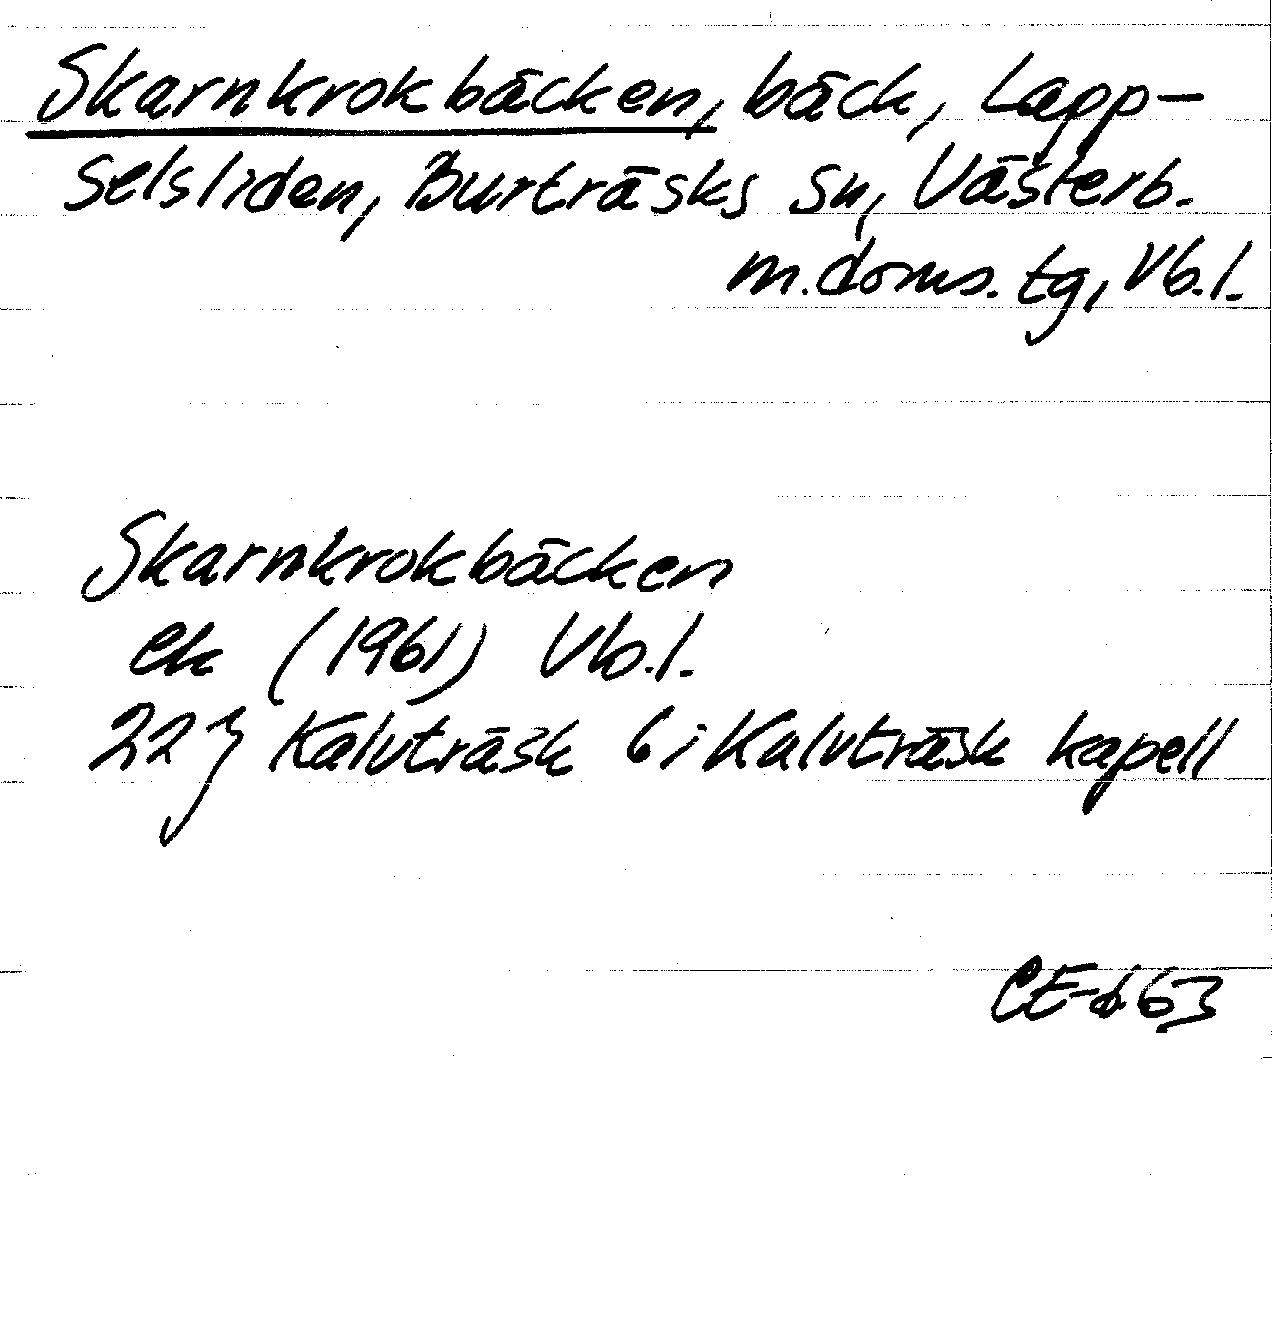 Skarnkrokbäcken, bäck, Lapp-
selsliden, Burträsks sn, Västerb.
m.doms.tg, Vb.l.
Skarnkrokbäcken
ek (1961) Vb.l.
22 j Kalvträsk 6 i Kalvträsk kapell